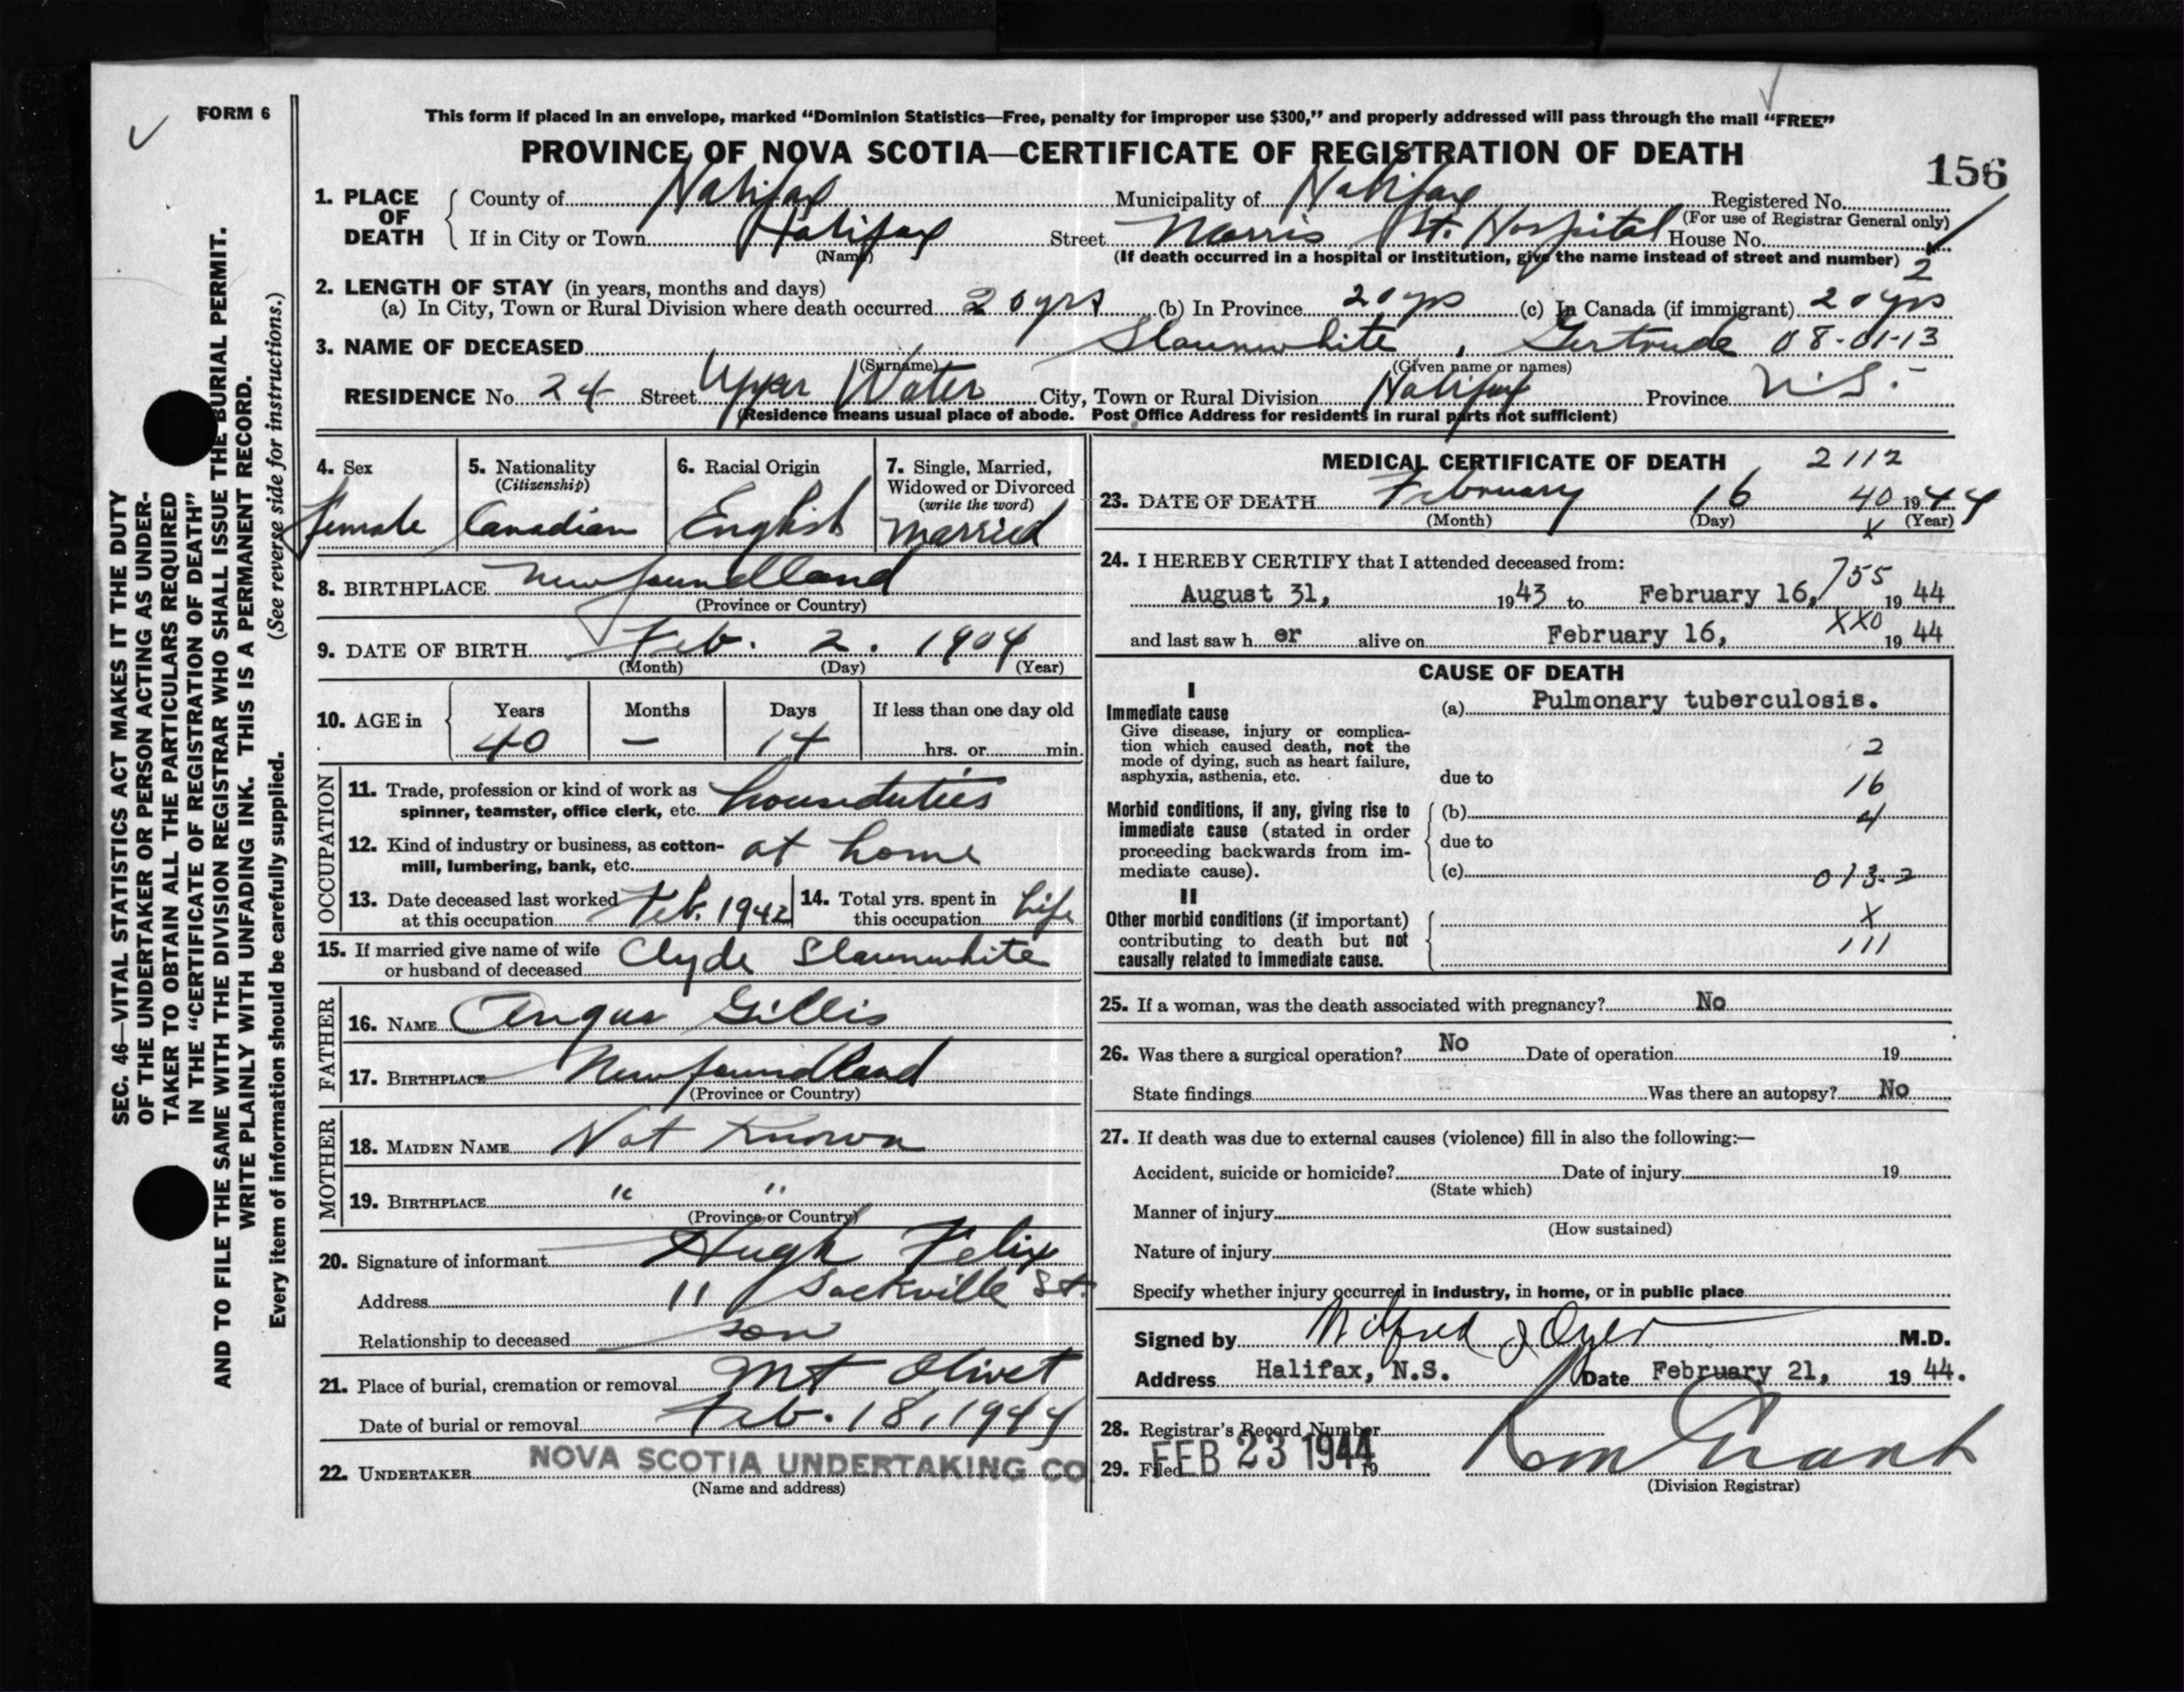 FORM 6
This form if placed in an envelope, marked “Dominion Statistics—Free, penalty for improper use $300,” and properly addressed will pass through the mail “FREE”
PROVINCE OF NOVA SCOTIA—CERTIFICATE OF REGISTRATION OF DEATH
156
1. PLACE OF DEATH
County of Halifax Municipality of Halifax Registered No.
(For use of Registrar General only)
If in City or Town Halifax Street Morris St. Hospital House No.
(Name) (If death occurred in a hospital or institution, give the name instead of street and number) 2
2. LENGTH OF STAY (in years, months and days)
(a) In City, Town or Rural Division where death occurred 20 yrs (b) In Province 20 yrs (c) In Canada (if immigrant) 20 yrs
3. NAME OF DECEASED Slaunwhite, Gertrude 08-01-13
(Surname) (Given name or names)
RESIDENCE No. 24 Street Upper Water City, Town or Rural Division Halifax Province N.S.
(Residence means usual place of abode. Post Office Address for residents in rural parts not sufficient)
4. Sex
Female
5. Nationality
(Citizenship)
Canadian
6. Racial Origin
English
7. Single, Married,
Widowed or Divorced
(write the word)
Married
8. BIRTHPLACE Newfoundland
(Province or Country)
9. DATE OF BIRTH Feb. 2. 1904
(Month) (Day) (Year)
10. AGE in Years Months Days If less than one day old
40 — 14 hrs. or min.
OCCUPATION
11. Trade, profession or kind of work as
spinner, teamster, office clerk, etc. houseduties
12. Kind of industry or business, as cotton-
mill, lumbering, bank, etc. at home
13. Date deceased last worked
at this occupation Feb. 1942
14. Total yrs. spent in
this occupation Life
15. If married give name of wife
or husband of deceased Clyde Slaunwhite
FATHER
16. NAME Angus Gillis
17. BIRTHPLACE Newfoundland
(Province or Country)
MOTHER
18. MAIDEN NAME Not Known
19. BIRTHPLACE " "
(Province or Country)
20. Signature of informant Hugh Felix
Address 11 Sackville St.
Relationship to deceased son
21. Place of burial, cremation or removal Mt Olivet
Date of burial or removal Feb. 18, 1944
22. UNDERTAKER NOVA SCOTIA UNDERTAKING CO
(Name and address)
MEDICAL CERTIFICATE OF DEATH 2112
23. DATE OF DEATH February 16 40 1944
(Month) (Day) (Year)
x
24. I HEREBY CERTIFY that I attended deceased from:
755
August 31, 1943 to February 16, 1944
XX0
and last saw her alive on February 16, 1944
CAUSE OF DEATH
I
Immediate cause
Give disease, injury or complica-
tion which caused death, not the
mode of dying, such as heart failure,
asphyxia, asthenia, etc.
(a) Pulmonary tuberculosis.
2
due to
16
Morbid conditions, if any, giving rise to
immediate cause (stated in order
proceeding backwards from im-
mediate cause).
(b)
4
due to
(c)
013.2
II
Other morbid conditions (if important)
contributing to death but not
causally related to immediate cause.
X
111
25. If a woman, was the death associated with pregnancy? No
26. Was there a surgical operation? No Date of operation 19
State findings Was there an autopsy? No
27. If death was due to external causes (violence) fill in also the following:—
Accident, suicide or homicide? Date of injury 19
(State which)
Manner of injury
(How sustained)
Nature of injury
Specify whether injury occurred in industry, in home, or in public place
Signed by M.D.
Address Halifax, N.S. Date February 21, 1944.
28. Registrar's Record Number
29. Filed FEB 23 1944 19
(Division Registrar)
SEC. 46—VITAL STATISTICS ACT MAKES IT THE DUTY
OF THE UNDERTAKER OR PERSON ACTING AS UNDER-
TAKER TO OBTAIN ALL THE PARTICULARS REQUIRED
IN THE “CERTIFICATE OF REGISTRATION OF DEATH”
AND TO FILE THE SAME WITH THE DIVISION REGISTRAR WHO SHALL ISSUE THE BURIAL PERMIT.
WRITE PLAINLY WITH UNFADING INK. THIS IS A PERMANENT RECORD.
Every item of information should be carefully supplied. (See reverse side for instructions.)